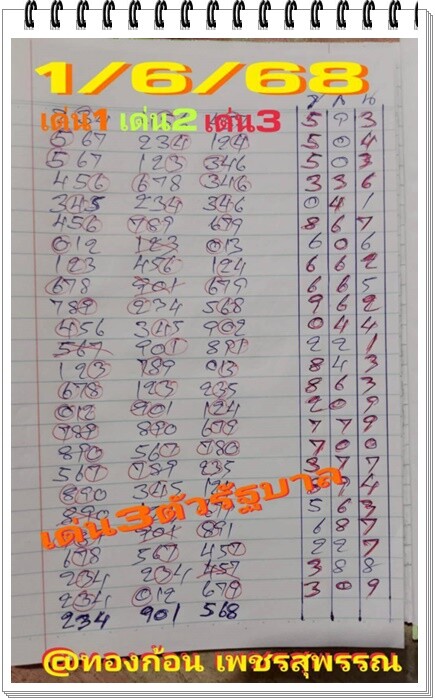 1/6/68
เด่น1 เด่น2 เด่น3
567 234 194 5 0 4
567 123 346 5 0 3
456 678 346 3 3 6
345 234 346 0 4 1
456 789 679 8 6 7
012 123 013 6 0 6
123 456 124 6 6 2
678 901 679 6 6 5
789 234 568 9 6 2
456 345 902 0 4 4
567 901 891 2 2 1
123 789 013 8 4 3
678 123 235 8 6 3
012 901 124 2 0 9
789 890 679 7 7 9
890 567 780 7 0 0
567 789 235 3 7 7
890 345 4
เด่น3ตัวรัฐบาล
890 5 6 3
901 891 6 8 7
678 567 457 2 2 7
234 234 457 3 8 8
234 012 679 3 0 9
234 901 568
@ทองก้อน เพชรสุพรรณ